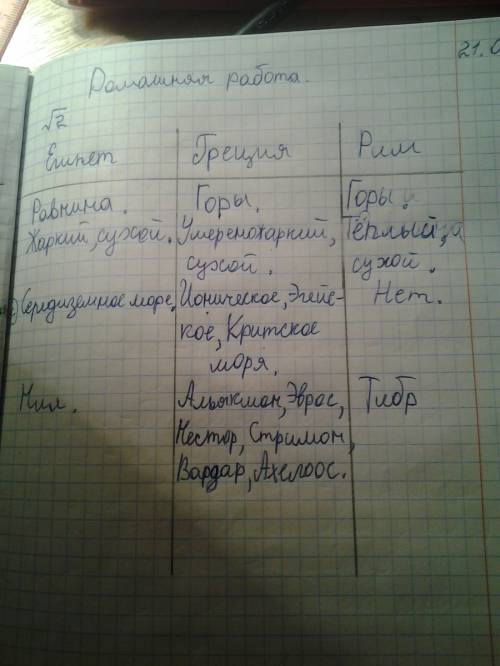 21.0
Домашняя работа.
√2
Египет Греция Рим
Равнина. Горы. Горы.
Жаркий, сухой. Умереножаркий, Тёплый,
сухой. сухой.
Середиземное море. Ионическое, Эгейс-
Нет.
кое, Критское
моря.
Нил. Альякмон, Эврос, Тибр
Нестор, Стримон,
Вардар, Ахелоос.